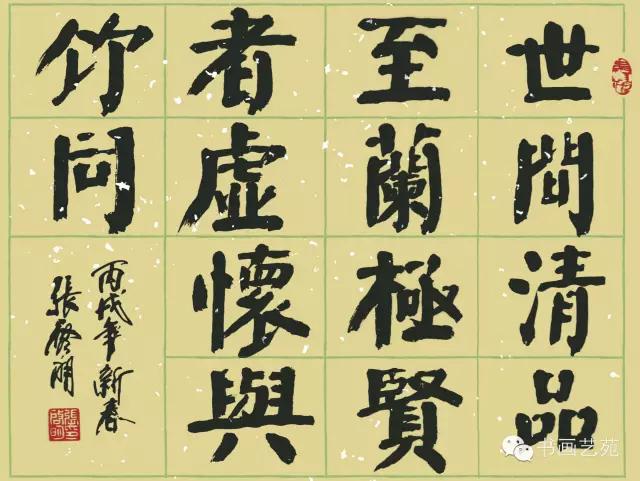 世間清品
至蘭極賢
者虛懷與
竹同
丙戌年新春
張啓明
书画艺苑